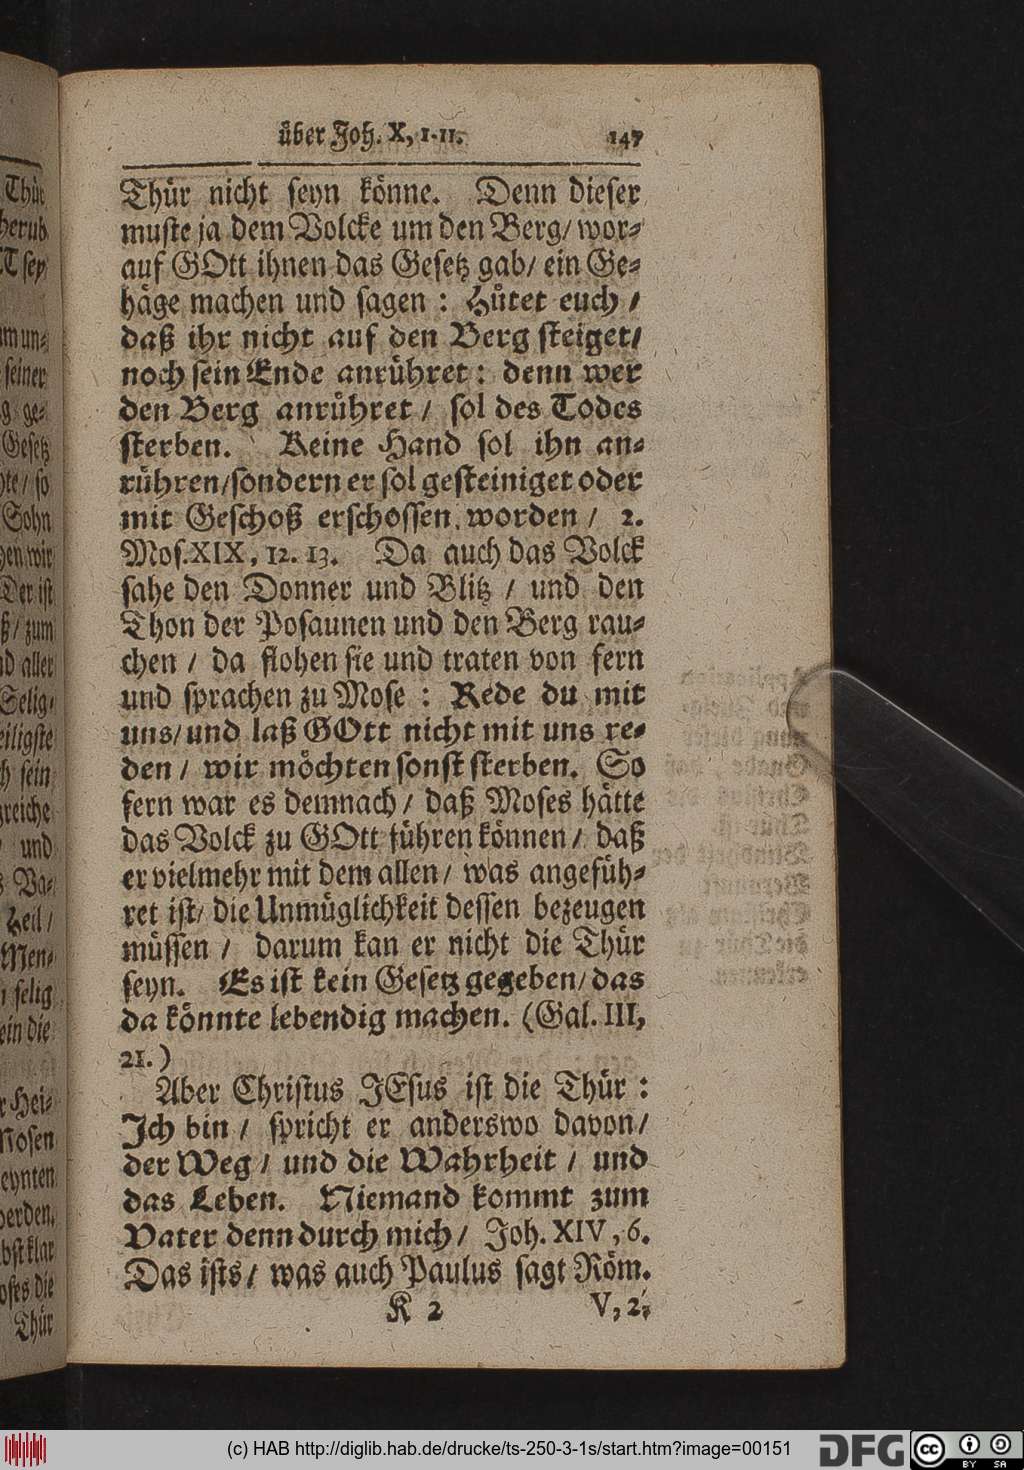 über Joh. X, 1-11. 147
Thür nicht seyn könne. Denn dieser
muste ja dem Volcke um den Berg/ wor-
auf GOtt ihnen das Gesetz gab/ ein Ge-
häge machen und sagen: Hütet euch/
daß ihr nicht auf den Berg steiget/
noch sein Ende anrühret: denn wer
den Berg anrühret/ sol des Todes
sterben. Keine Hand sol ihn an-
rühren/sondern er sol gesteiniget oder
mit Geschoß erschossen worden/ 2.
Mos. XIX, 12. 13. Da auch das Volck
sahe den Donner und Blitz/ und den
Thon der Posaunen und den Berg rau-
chen/ da flohen sie und traten von fern
und sprachen zu Mose: Rede du mit
uns/ und laß GOtt nicht mit uns re-
den/ wir möchten sonst sterben. So
fern war es demnach/ daß Moses hätte
das Volck zu GOtt führen können/ daß
er vielmehr mit dem allen/ was angefüh-
ret ist/ die Unmüglichkeit dessen bezeugen
müssen/ darum kan er nicht die Thür
seyn. Es ist kein Gesetz gegeben/ das
da könnte lebendig machen. (Gal. III,
21.)
Aber Christus JEsus ist die Thür:
Ich bin/ spricht er anderswo davon/
der Weg/ und die Wahrheit/ und
das Leben. Niemand kommt zum
Vater denn durch mich/ Joh. XIV, 6.
Das ists/ was auch Paulus sagt Röm.
K 2 V, 2;
Thür
herub
T sey
mun-
seiner
g ge-
Gesetz
te/ so
Sohn
en wir
Der ist
ß/ zum
d aller
Selig-
eiligste
h sein
reiche
und
s Va-
Heil/
Men-
selig
ein die
r Hei-
Mosen
eynten
erden,
bst klar
oses die
Thür
(c) HAB http://diglib.hab.de/drucke/ts-250-3-1s/start.htm?image=00151
DFG
cc BY SA